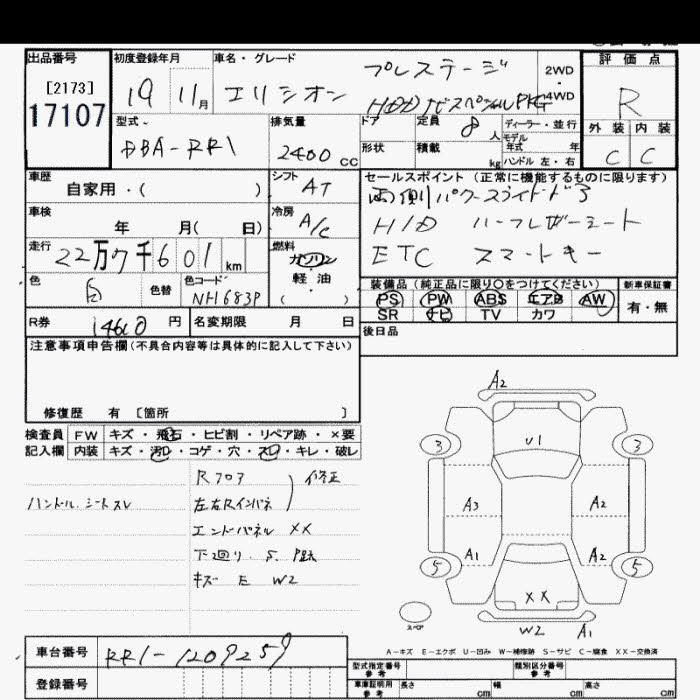 出品番号
[2173]
17107
初度登録年月
19 11月
車名・グレード
エリシオン
プレステージ
HDDナビスペシャルPKG
2WD
4WD
評価点
R
外装 内装
C C
型式
DBA-RR1
排気量
2400 cc
ドア
定員
8人
ディーラー・並行
モデル年式 年
形状
積載 kg
ハンドル 左・右
車歴
自家用・( )
シフト
AT
セールスポイント(正常に機能するものに限ります)
両側パワースライドドア
H/D ハーフレザーシート
ETC スマートキー
車検
年 月( 日)
冷房
A/C
走行
22万7千601km
燃料
ガソリン
軽油
( )
色
白
色替
色コード
NH683P
装備品(純正品に限り○をつけてください)
新車保証書
PS PW ABS エアB AW
SR ナビ TV カワ
有・無
R券
14600円
名変期限 月 日
後日品
注意事項申告欄(不具合内容等は具体的に記入して下さい)
修復歴 有 [箇所 ]
検査員記入欄
FW キズ・飛石・ヒビ割・リペア跡・×要
内装 キズ・汚レ・コゲ・穴・スレ・キレ・破レ
ハンドル.シートスレ
修正
左右Rインパネ
エンドパネル XX
下廻り. S.
キズ E W2
A2
3 U1 3
A3 A2
A1 A2
5 5
XX
W2 A1
スペア
A-キズ E-エクボ U-凹み W-補修跡 S-サビ C-腐食 XX-交換済
車台番号
RR1-1209259
登録番号
型式指定番号
参考
類別区分番号
参考
車庫証明用
参考
長さ cm 幅 cm 高さ cm